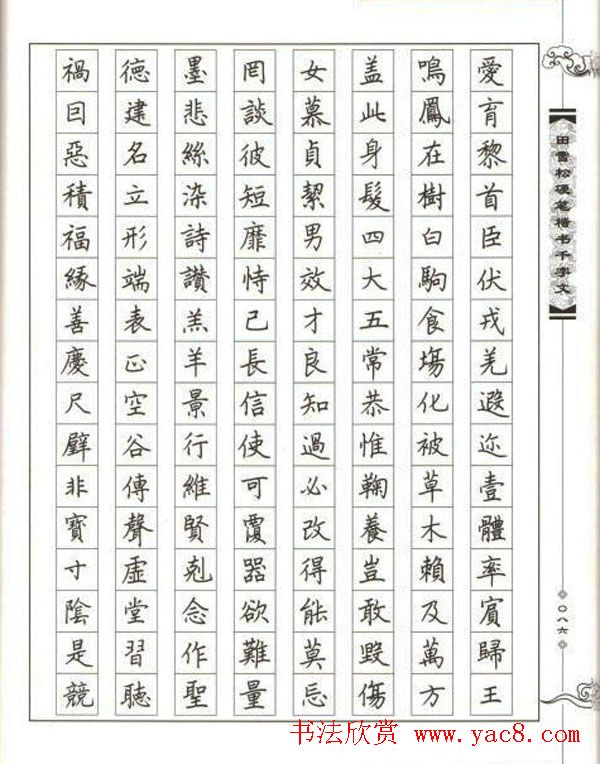 田雪松硬笔楷书千字文
愛育黎首臣伏戎羌遐迩壹體率賓歸王
鳴鳳在樹白駒食塲化被草木賴及萬方
盖此身髮四大五常恭惟鞠養豈敢毀傷
女慕貞絜男效才良知過必改得能莫忘
罔談彼短靡恃己長信使可覆器欲難量
墨悲絲染詩讚羔羊景行維賢剋念作聖
德建名立形端表正空谷傳聲虛堂習聽
禍囙惡積福緣善慶尺璧非寶寸陰是競
〇八六
书法欣赏 www.yac8.com